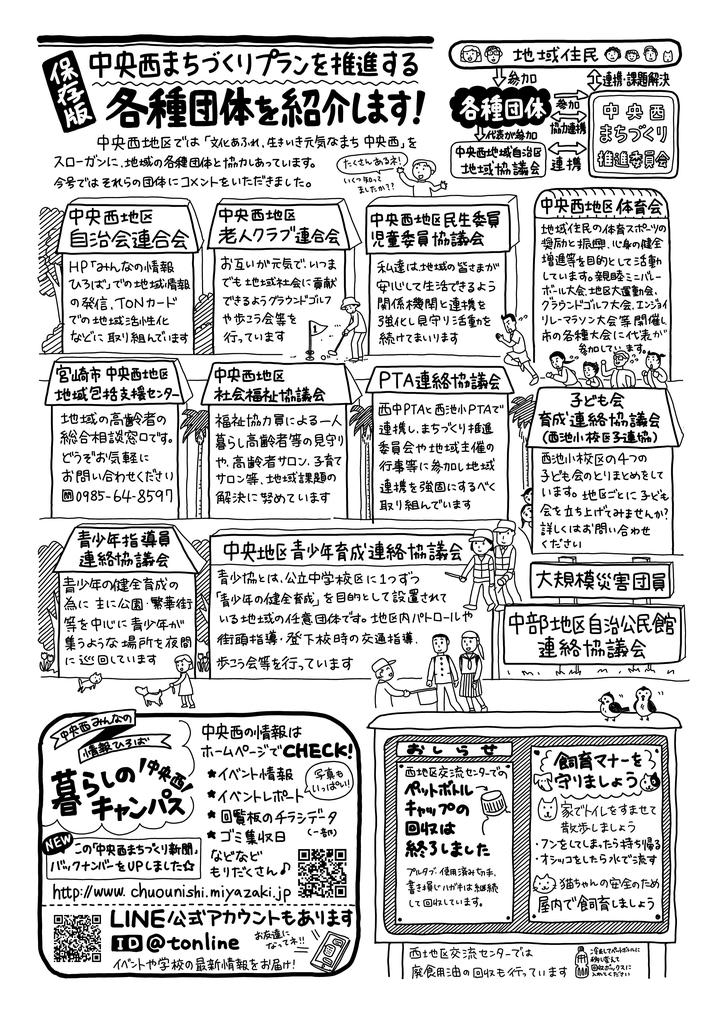 保存版
中央西まちづくりプランを推進する
各種団体を紹介します!
中央西地区では「文化あふれ、生きいき元気なまち 中央西」を
スローガンに、地域の各種団体と協力しあっています。
今号ではそれらの団体にコメントをいただきました。
たくさんあるネ!
いくつ知って
ましたか??
地域住民
参加
連携・課題解決
各種団体
参加
協力連携
代表が参加
中央西地域自治区
地域協議会
連携
中央西
まちづくり
推進委員会
中央西地区
自治会連合会
HP「みんなの情報
ひろば」での地域情報
の発信、TONカード
での地域活性化
などに取り組んでいます
中央西地区
老人クラブ連合会
お互いが元気で、いつま
でも地域社会に貢献
できるようグラウンドゴルフ
や歩こう会等を
行っています
1
中央西地区民生委員
児童委員協議会
私達は、地域の皆さまが
安心して生活できるよう
関係機関と連携を
強化し見守り活動を
続けてまいります
中央西地区体育会
地域住民の体育スポーツの
奨励と振興、心身の健全
増進等を目的として活動
しています。親睦ミニバレー
ボール大会、地区大運動会、
グラウンドゴルフ大会、エンジョイ
リレーマラソン大会等開催し
市の各種大会に代表が
参加しています。
宮崎市 中央西地区
地域包括支援センター
地域の高齢者の
総合相談窓口です。
どうぞお気軽に
お問い合わせください
☎0985-64-8597
中央西地区
社会福祉協議会
福祉協力員による一人
暮らし高齢者等の見守り
や、高齢者サロン、子育て
サロン等、地域課題の
解決に努めています
PTA連絡協議会
西中PTAと西池小PTAで
連携し、まちづくり推進
委員会や地域主催の
行事等に参加し地域
連携を強固にするべく
取り組んでいます
子ども会
育成連絡協議会
(西池小校区子連協)
西池小校区の4つの
子ども会のとりまとめをして
います。地区ごとに子ども
会を立ち上げてみませんか?
詳しくはお問い合わせ
ください
青少年指導員
連絡協議会
青少年の健全育成の
為に主に公園・繁華街
等を中心に青少年が
集うような場所を夜間
に巡回しています
中央地区青少年育成連絡協議会
青少協とは、公立中学校区に1つずつ
「青少年の健全育成」を目的として設置されて
いる地域の任意団体です。地区内パトロールや
街頭指導・登下校時の交通指導、
歩こう会等を行っています
大規模災害団員
中部地区自治公民館
連絡協議会
中央西みんなの
情報ひろば
暮らしの
中央西
キャンパス
NEW
この「中央西まちづくり新聞」
バックナンバーをUPしました☆
中央西の情報は
ホームページでCHECK!
★イベント情報
★イベントレポート
写真も
いっぱい!
★回覧板のチラシデータ
★ゴミ集収日 (一部)
などなど
もりだくさん♪
http://www.chuounishi.miyazaki.jp
LINE公式アカウントもあります
ID@tonline
お友達に
なってネ!!
イベントや学校の最新情報をお届け!
おしらせ
西地区交流センターでの
ペットボトル
キャップの
回収は
終了しました
プルタブ・使用済み切手、
書き損じハガキは継続
して回収しています。
飼育マナーを
守りましょう
家でトイレをすませて
散歩しましょう
・フンをしてしまったら持ち帰る
・オシッコをしたら水で流す
猫ちゃんの安全のため
屋内で飼育しましょう
西地区交流センターでは
廃食用油の回収も行っています
冷ましてペットボトルに
移し変えて
回収ボックスに
入れてください